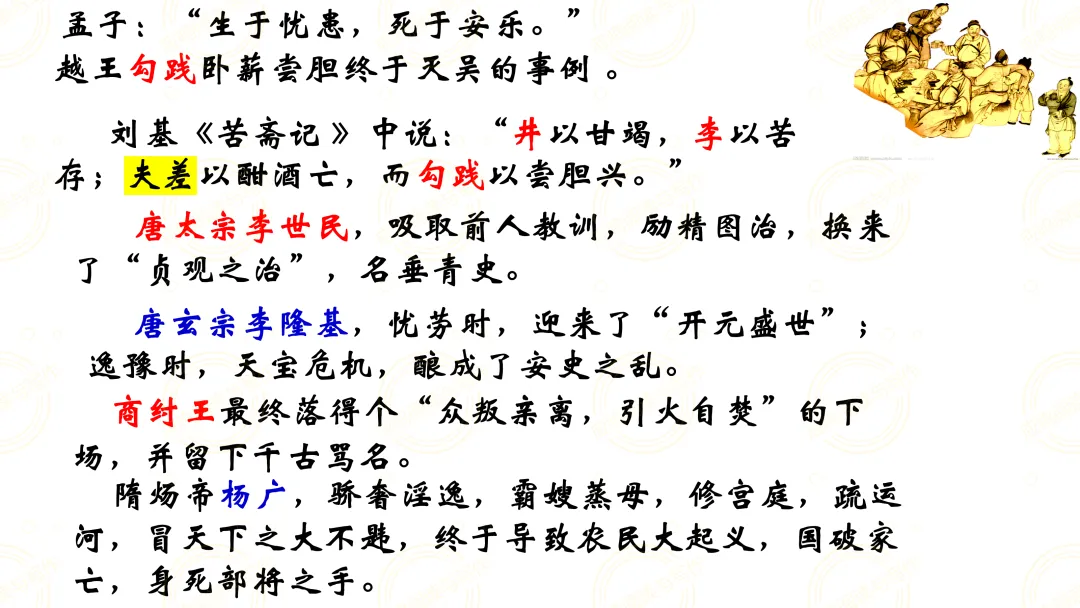 孟子：“生于忧患，死于安乐。”
越王勾践卧薪尝胆终于灭吴的事例 。
刘基《苦斋记 》中说：“井以甘竭，李以苦
存；夫差以酣酒亡，而勾践以尝胆兴。”
唐太宗李世民，吸取前人教训，励精图治，换来
了“贞观之治”，名垂青史。
唐玄宗李隆基，忧劳时，迎来了“开元盛世”；
逸豫时，天宝危机，酿成了安史之乱。
商纣王最终落得个“众叛亲离，引火自焚”的下
场，并留下千古骂名。
隋炀帝杨广，骄奢淫逸，霸嫂蒸母，修宫庭，疏运
河，冒天下之大不韪，终于导致农民大起义，国破家
亡，身死部将之手。